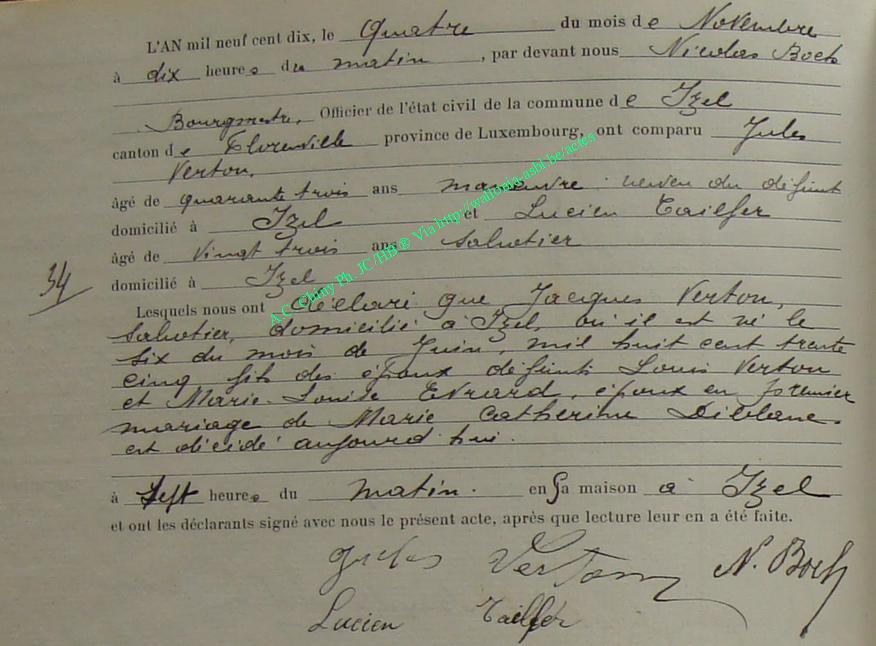 L'AN mil neuf cent dix, le Quatre du mois de Novembre
à dix heures du matin, par devant nous Nicolas Boch
Bourgmestre, Officier de l'état civil de la commune de Izel
canton de Florenville province de Luxembourg, ont comparu Jules
Verton,
âgé de quarante trois ans manœuvre neveu du défunt
domicilié à Izel et Lucien Tailfer
âgé de vingt trois ans Sabotier
domicilié à Izel
34
Lesquels nous ont déclaré que Jacques Verton,
Sabotier, domicilié à Izel, où il est né le
six du mois de Juin, mil huit cent trente
cinq fils des époux défunts Louis Verton
et Marie-Louise Evrard, époux en premier
mariage de Marie Catherine
est décédé aujourd'hui.
à Sept heures du matin. en sa maison à Izel
et ont les déclarants signé avec nous le présent acte, après que lecture leur en a été faite.
Jules Verton N. Boch
Lucien Tailfer
A.C. Chiny Ph. JC/HB ® Via http://wallonia-asbl.be/actes